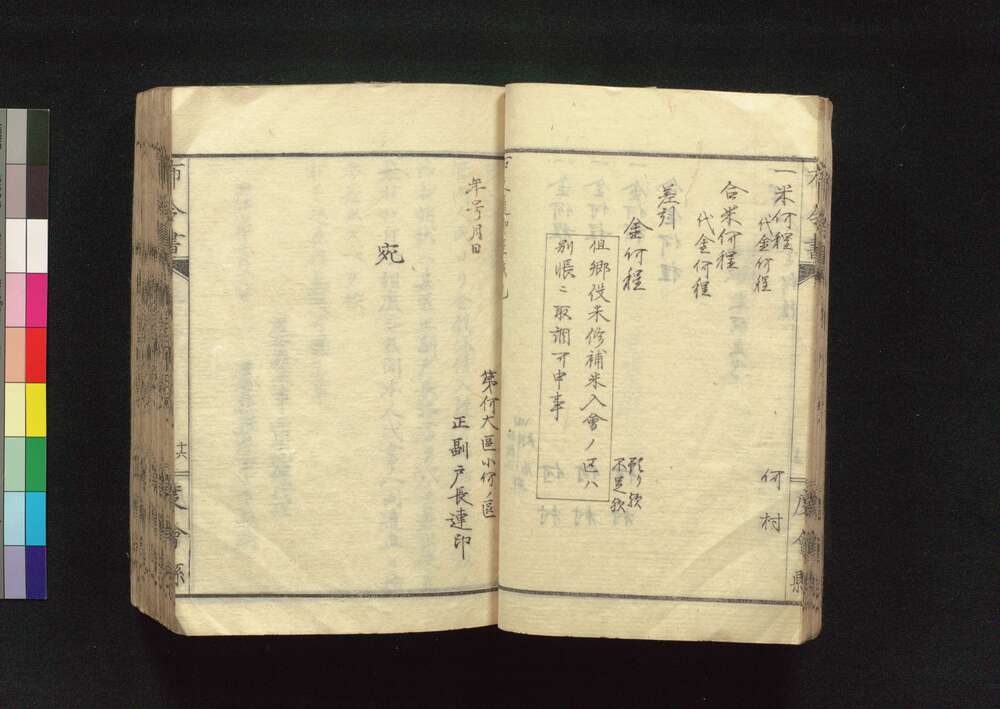 一米何程
代金何程
何村
合米何程
代金何程
差引
金何程
余り欤
不足欤
但郷備米修補米入會ノ区ハ
別帳ニ取調可申事
年号月日
第何大區小何ノ區
正副戸長連印
宛
布令書
十六
度會縣